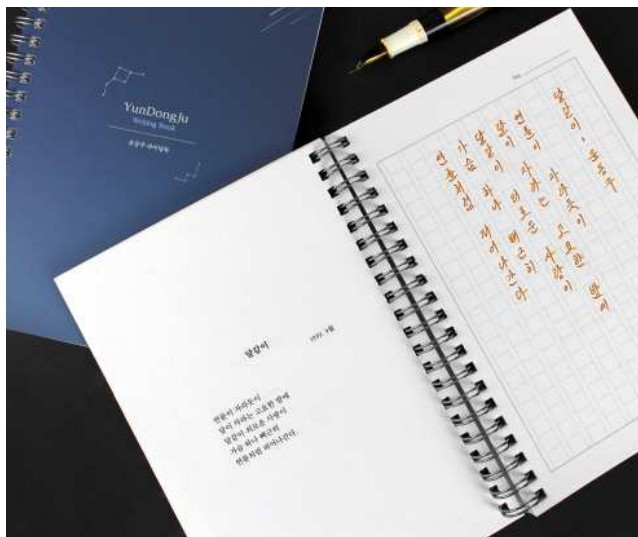 YunDongJu
Writing Book
윤동주 라이팅북
달같이
1939. 9월
연륜이 자라듯이
달이 자라는 고요한 밤에
달같이 외로운 사랑이
가슴 하나 뻐근히
연륜처럼 피어나간다.
달같이, 윤동주
연륜이 자라듯이
달이 자라는 고요한 밤에
달같이 외로운 사랑이
가슴 하나 뻐근히
연륜처럼 피어나간다